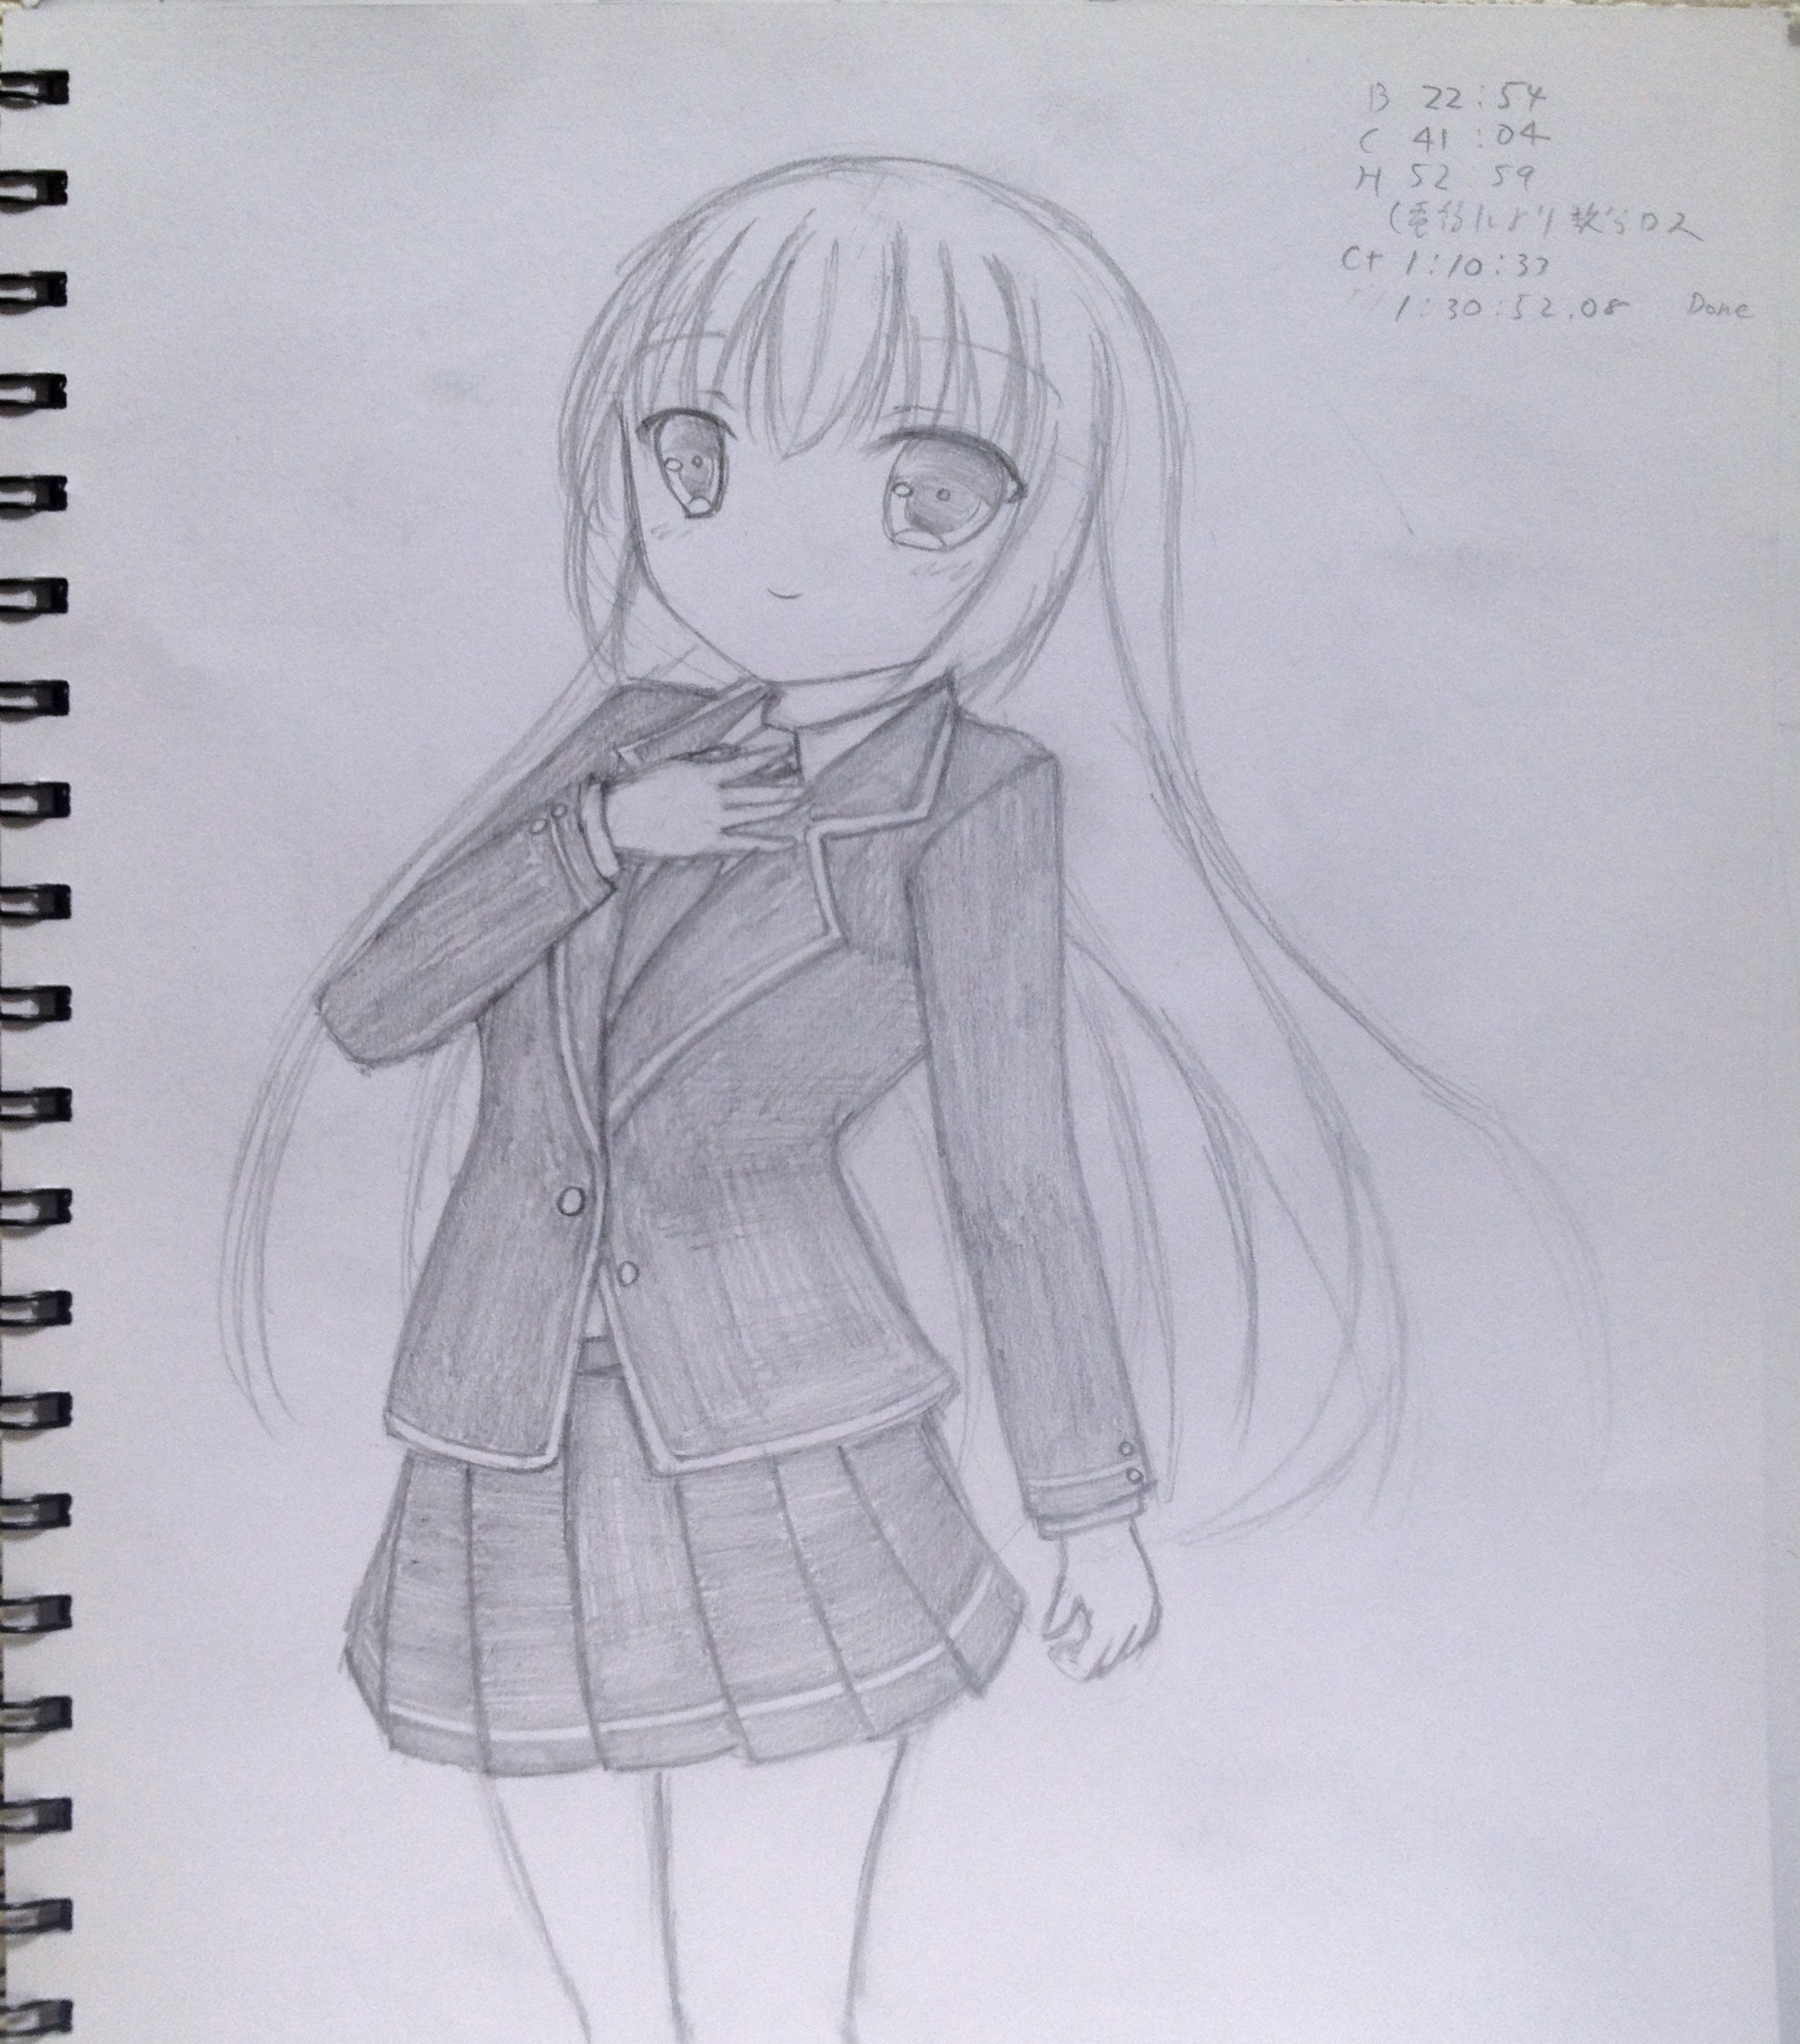 B 22:54
C 41:04
H 52 59
(電話により数分ロス
C+ 1:10:33
1:30:52.08 Done